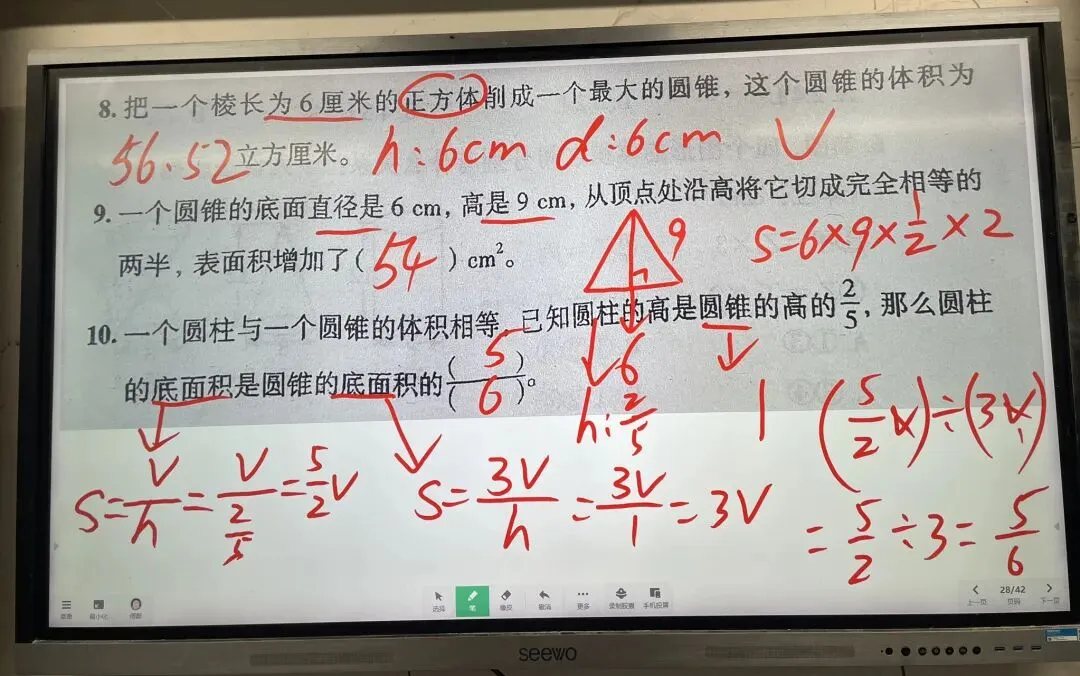 8. 把一个棱长为6厘米的正方体削成一个最大的圆锥，这个圆锥的体积为
56.52立方厘米。 h:6cm d:6cm V
9. 一个圆锥的底面直径是6 cm，高是9 cm，从顶点处沿高将它切成完全相等的
两半，表面积增加了(54)cm²。 9 S=6×9×1/2×2
6
10. 一个圆柱与一个圆锥的体积相等，已知圆柱的高是圆锥的高的2/5，那么圆柱
的底面积是圆锥的底面积的(5)/(6)。
h:2/5 1 (5/2V)÷(3V)
S=V/h=V/(2/5)=5/2V S=3V/h=3V/1=3V =5/2÷3=5/6
菜单 最小化 选择 笔 橡皮 撤消 更多 录制胶囊 手机投屏 上一页 28/42 页码 下一页
seewo